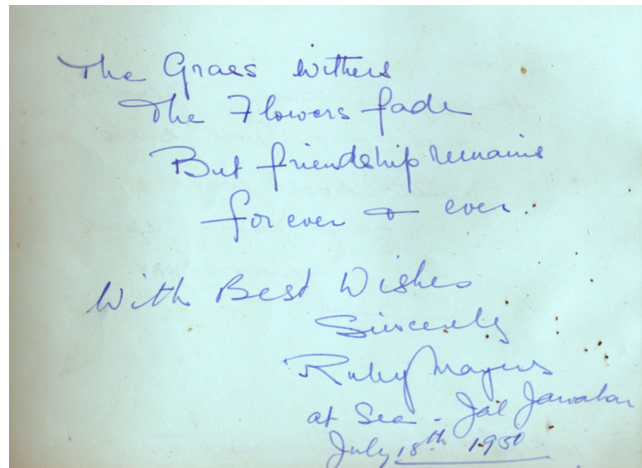 The Grass withers
The Flowers fade
But friendship remains
for ever & ever.
With Best Wishes
Sincerely
Ruby Mayers
at Sea - Jal Jawahar
July 18th 1950